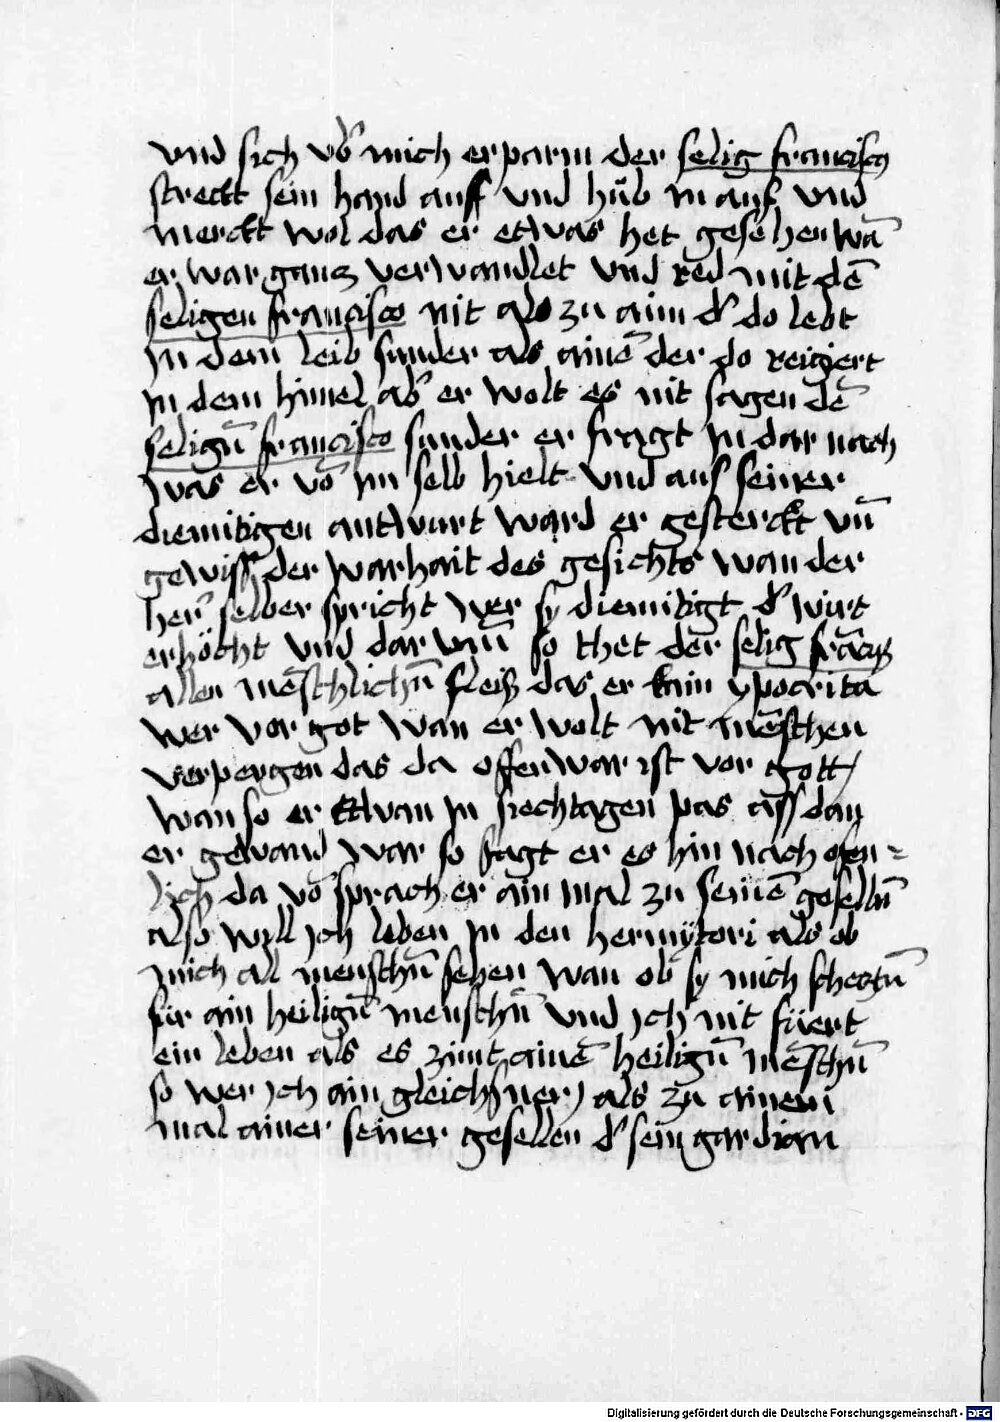 vnd sich vb̓ mich erparm der selig francisco
streckt sein hand auff vnd hůb in auf vnd
merckt wol das er etwas het gesehen wā
er war gancz verwandlet vnd red mit dē
seligen francisco nit als zu aim d̓ do lebt
in dem leib sunder als ainē der do reigiert
in dem himel ab̓ er wolt es nit sagen dē
seligū francisco sunder er fragt in dar nach
was er vō im selb hielt vnd aus seiner
diemitigen antwurt ward er gesterckt vn̄
gewiss der warhait des gesichts wan der
her̓ selber spricht wer sy diemitigt d̓ wirt
erhöcht vnd dar vm̄ so thet der selig frācis
allen mēschlichn̄ fleiß das er kain ypocrita
wer vor got wan er wolt nit mēschen
verpergen das da offenwar ist vor gott /
wan so er ettwan in siechtagen pas ass dan
er gewand war so sagt er es hin nach ofen=
lich da vō sprach er ain mal zu seinē geselln̄
also will ich leben in den hermytori als ob
mich all menschn̄ sehen wan ob sy mich scheczn̄
für ain heilign̄ menschn̄ vnd ich nit füert
ein leben als es zimt ainē heilign̄ mēschn̄
so wer ich ain gleichsner / als zu ainem
mal ainer seiner gesellen d̓ sein gardian
Digitalisierung gefördert durch die Deutsche Forschungsgemeinschaft - DFG